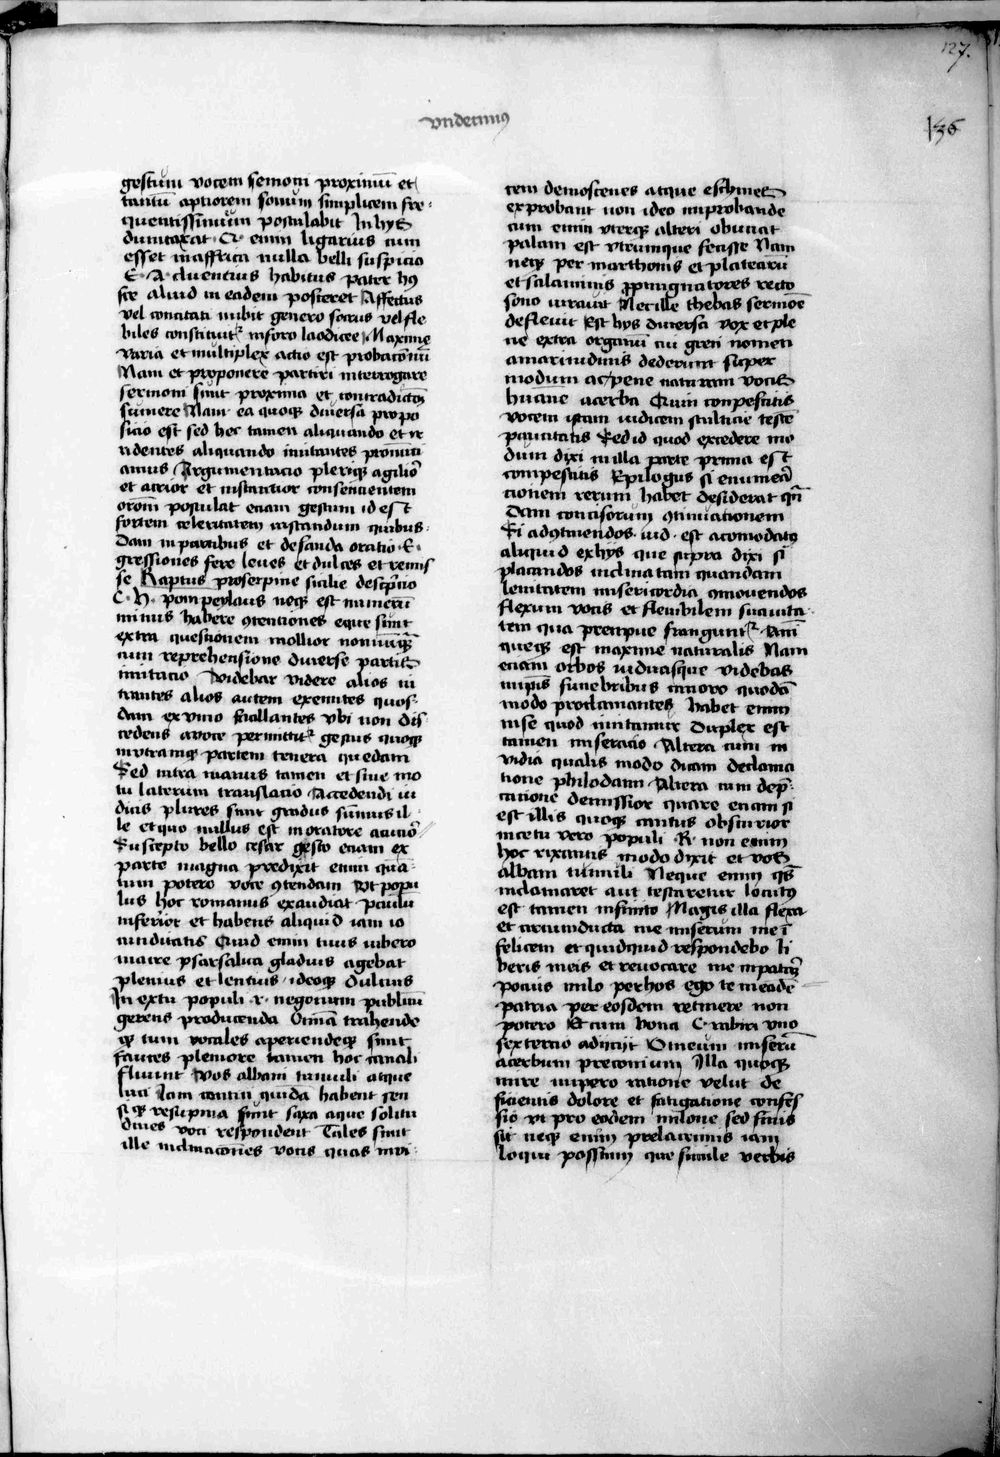 127.
vndecimus
136
gestum vocem semoni proximū et
tantū aptiorem sonum simplicem fre
quentissimum postulabit In hys
dumtaxat Q enim ligarius cum
esset inaffrica nulla belli suspicio
E. A cluentius habitus pater hꝰ
fce aliud in eadem posceret Affectus
vel concitati nubit genero socrus vel fle
biles constituitᷣ inforo laodicee Maxime
varia et multiplex actio est probacōnū
Nam et proponere partiri interrogare
sermoni sunt proxima et contradictōꝫ
sumere Nam ea quoqꝫ diuersa propo
sicio est sed hec tamen aliquando et ir
ridentes aliquando imitantes pronūci
amus Argumentacio plerūqꝫ agilior
et acrior et instantior consencientem
orōni postulat eciam gestum id est
fortem celeritatem instandum quibus
dam inpartibus et desanda oratio E
gressiones fere leues et dulces et remis
se Raptus proserpine sicilie descripcio
C. N. pompeylaus neqꝫ est numerū
minus habere ꝯtentiones eque sunt
extra questionem mollior nonnūqꝫ
cum reprehensione diuerse partis
imitacio Videbar videre alios in
trantes alios autem exeuntes quos
dam ex vino vacillantes vbi non dis
cedens auoce permittitᷣ gestus quoqꝫ
inutramqꝫ partem tenera quedam
Sed intra manus tamen et sine mo
tu laterum translacio Accedendi iu
dicis plures sunt gradus sūmus il
le et quo nullus est in oratore acucior
Suscepto bello cesar gesto eciam ex
parte magna predixit enim quā
tum potero voce ꝯtendam vt popu
lus hoc romanus exaudiat paulū
inferior et habens aliquid iam io
cunditatis Quid enim tuus tubero
in acie pharsalica gladius agebat
plenius et lentius ideoqꝫ dulcius
In cetu populi r. negocium publicū
gerens producenda Omnia trahende
qꝫ tum vocales aperiendeqꝫ sunt
fauces pleniore tamen hoc canali
fluunt Vos albani tumuli atque
luci Iam cantici quidda habent sen
simqꝫ resupina sunt saxa atque solitu
dines voci respondent Tales sunt
ille inclinacōnes vocis quas inui
cem demoscenes atque eschines
exprobant non ideo improbande
cum enim vterqꝫ alteri obiciat
palam est vtrumque fecisse Nam
neqꝫ per marthonis et platearū
et salaminis ꝓpugnatores recto
sono iurauit Nec ille thebas sermoē
defleuit Est hys diuersa vox et ple
ne extra organū cui greci nomen
amaritudinis dederunt super
modum ac pene naturam vocis
humane acerba Quin compescitis
vocem istam iudicem stulticie testē
paucitatis Sed id quod excedere mo
dum dixi in illa parte prima est
compescitis Epilogus si enumerā
cionem rerum habet desiderat quā
dam concisorum ꝯtinuationem
Si ad ꝯciliandos iud. est acomodatꝰ
aliquid ex hys que supra dixi si
placandos inclinatam quandam
lenitatem misericordia ꝯmouendos
flexum vocis et flenibilem suauita
tem qua precipue frangunt Aīi
queqꝫ est maxime naturalis Nam
eciam orbos viduasque videbas
inipīs funebribus canoro quodā
modo proclamantes habet enim
in se quod imitamur Duplex est
tamen miseracio Altera cum in
vidia qualis modo dicam declama
tione philodami Altera cum dep̄
catione demissior quare eciam si
est illis quoqꝫ cantus obscurior
in cetu vero populi R. non enim
hoc rixantis modo dixit et vos
albani tumuli Neque enim qs̄
inclamaret aut testaretur locutꝰ
est tamen infinito Magis illa flexa
et circumducta me miserum me ī
felicem et quidquid respondebo li
beris meis et reuocare me inpatriā
potuis milo per hos ego te in eadē
patria per eosdem retinere non
potero Et cum bona C. rabiri vno
sextercio adiicit O meum miserū
acerbum preconium Illa quoqꝫ
mire impero ratione velut de
ficientis dolore et fatigatione confes
sio vt pro eodem milone sed finis
sit neqꝫ enim prelacrimis iam
loqui possum que simile verbis